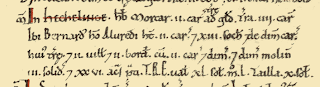 m̃ In hb̃ Morcar .ii. car̃ ad gl̃d. Tra .iiii. car̃.
Ibi Bernard hõ Aluredi ht̃ .ii. car̃ 7 xiii. soch de dim̃ car̃
huj̃ tre. 7 ii. uill̃ 7 ii. bord̃. cũ .ii. car̃ 7 dim̃. 7 dim̃ molin̄
.iii. solid̃. 7 xx vi. ac̃s p̃ti. T.R.E. uał. xl. sol̃. m̃. l. Tailla. xx. sol̃.